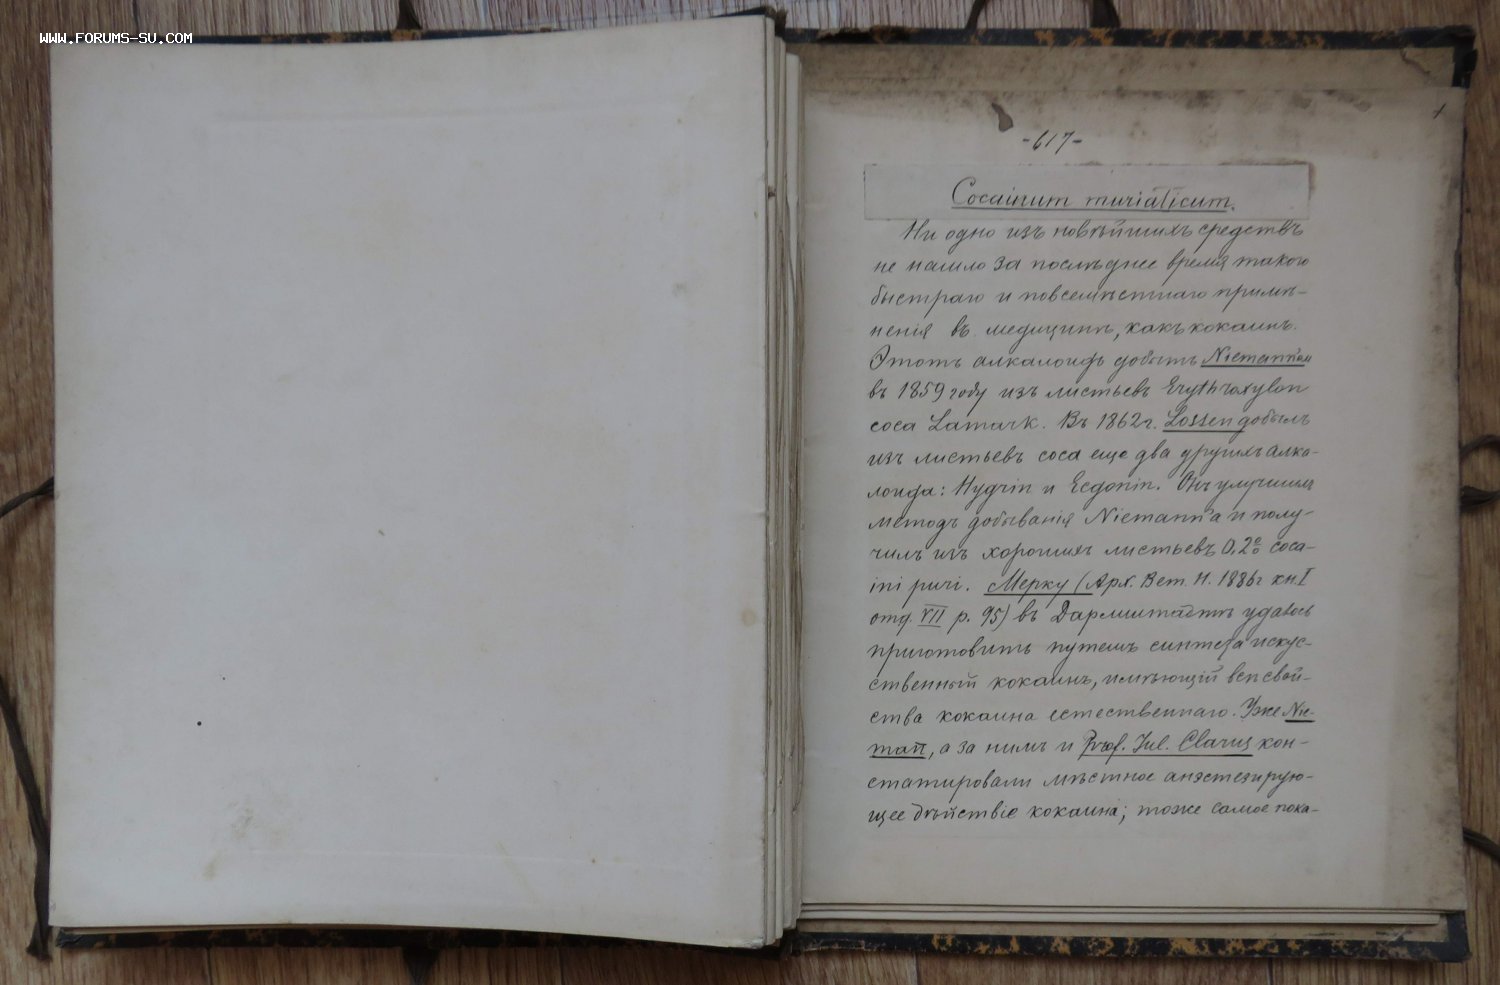 WWW.FORUMS-SU.COM
-617-
Cocainum muriaticum.
Ни одно изъ новѣйшихъ средствъ
не нашло за послѣднее время такого
быстраго и повсемѣстнаго примѣ-
ненія въ медицинѣ, какъ кокаинъ.
Этотъ алкалоидъ добытъ Niemann'омъ
въ 1859 году изъ листьевъ Erythroxylon
coca Lamark. Въ 1862 г. Lossen добылъ
изъ листьевъ coca еще два другихъ алка-
лоида: Hygrin и Ecgonin. Онъ улучшилъ
методъ добыванія Niemann'a и полу-
чилъ изъ хорошихъ листьевъ 0,2% coca-
ini puri. Мерку (Арх. Вет. Н. 1886 г кн. I
отд. VII р. 95) въ Дармштадтѣ удалось
приготовить путемъ синтеза искус-
ственный кокаинъ, имѣющій всѣ свой-
ства кокаина естественнаго. Уже Nie-
man, а за нимъ и Prof. Jul. Clarus кон-
статировали мѣстное анэстезирую-
щее дѣйствіе кокаина; тоже самое пока-